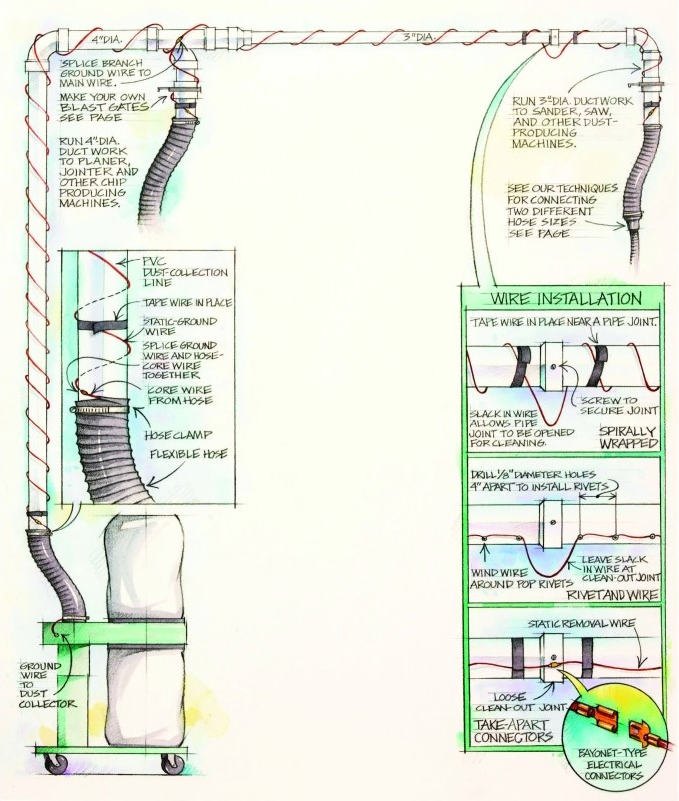 4"DIA.
3"DIA.
SPLICE BRANCH
GROUND WIRE TO
MAIN WIRE.
MAKE YOUR OWN
BLAST GATES
SEE PAGE
RUN 4"-DIA.
DUCT WORK
TO PLANER,
JOINTER AND
OTHER CHIP
PRODUCING
MACHINES.
RUN 3"DIA. DUCTWORK
TO SANDER, SAW,
AND OTHER DUST-
PRODUCING
MACHINES.
SEE OUR TECHNIQUES
FOR CONNECTING
TWO DIFFERENT
HOSE SIZES
SEE PAGE
PVC
DUST-COLLECTION
LINE
TAPE WIRE IN PLACE
STATIC-GROUND
WIRE
SPLICE GROUND
WIRE AND HOSE-
CORE WIRE
TOGETHER
CORE WIRE
FROM HOSE
HOSE CLAMP
FLEXIBLE HOSE
GROUND
WIRE
TO
DUST
COLLECTOR
WIRE INSTALLATION
TAPE WIRE IN PLACE NEAR A PIPE JOINT.
SLACK IN WIRE
ALLOWS PIPE
JOINT TO BE OPENED
FOR CLEANING.
SCREW TO
SECURE JOINT
SPIRALLY
WRAPPED
DRILL 1/8" DIAMETER HOLES
4" APART TO INSTALL RIVETS
WIND WIRE
AROUND POP RIVETS
LEAVE SLACK
IN WIRE AT
CLEAN-OUT JOINT
RIVET AND WIRE
STATIC REMOVAL WIRE
LOOSE
CLEAN-OUT JOINT
TAKE-APART
CONNECTORS
BAYONET-TYPE
ELECTRICAL
CONNECTORS